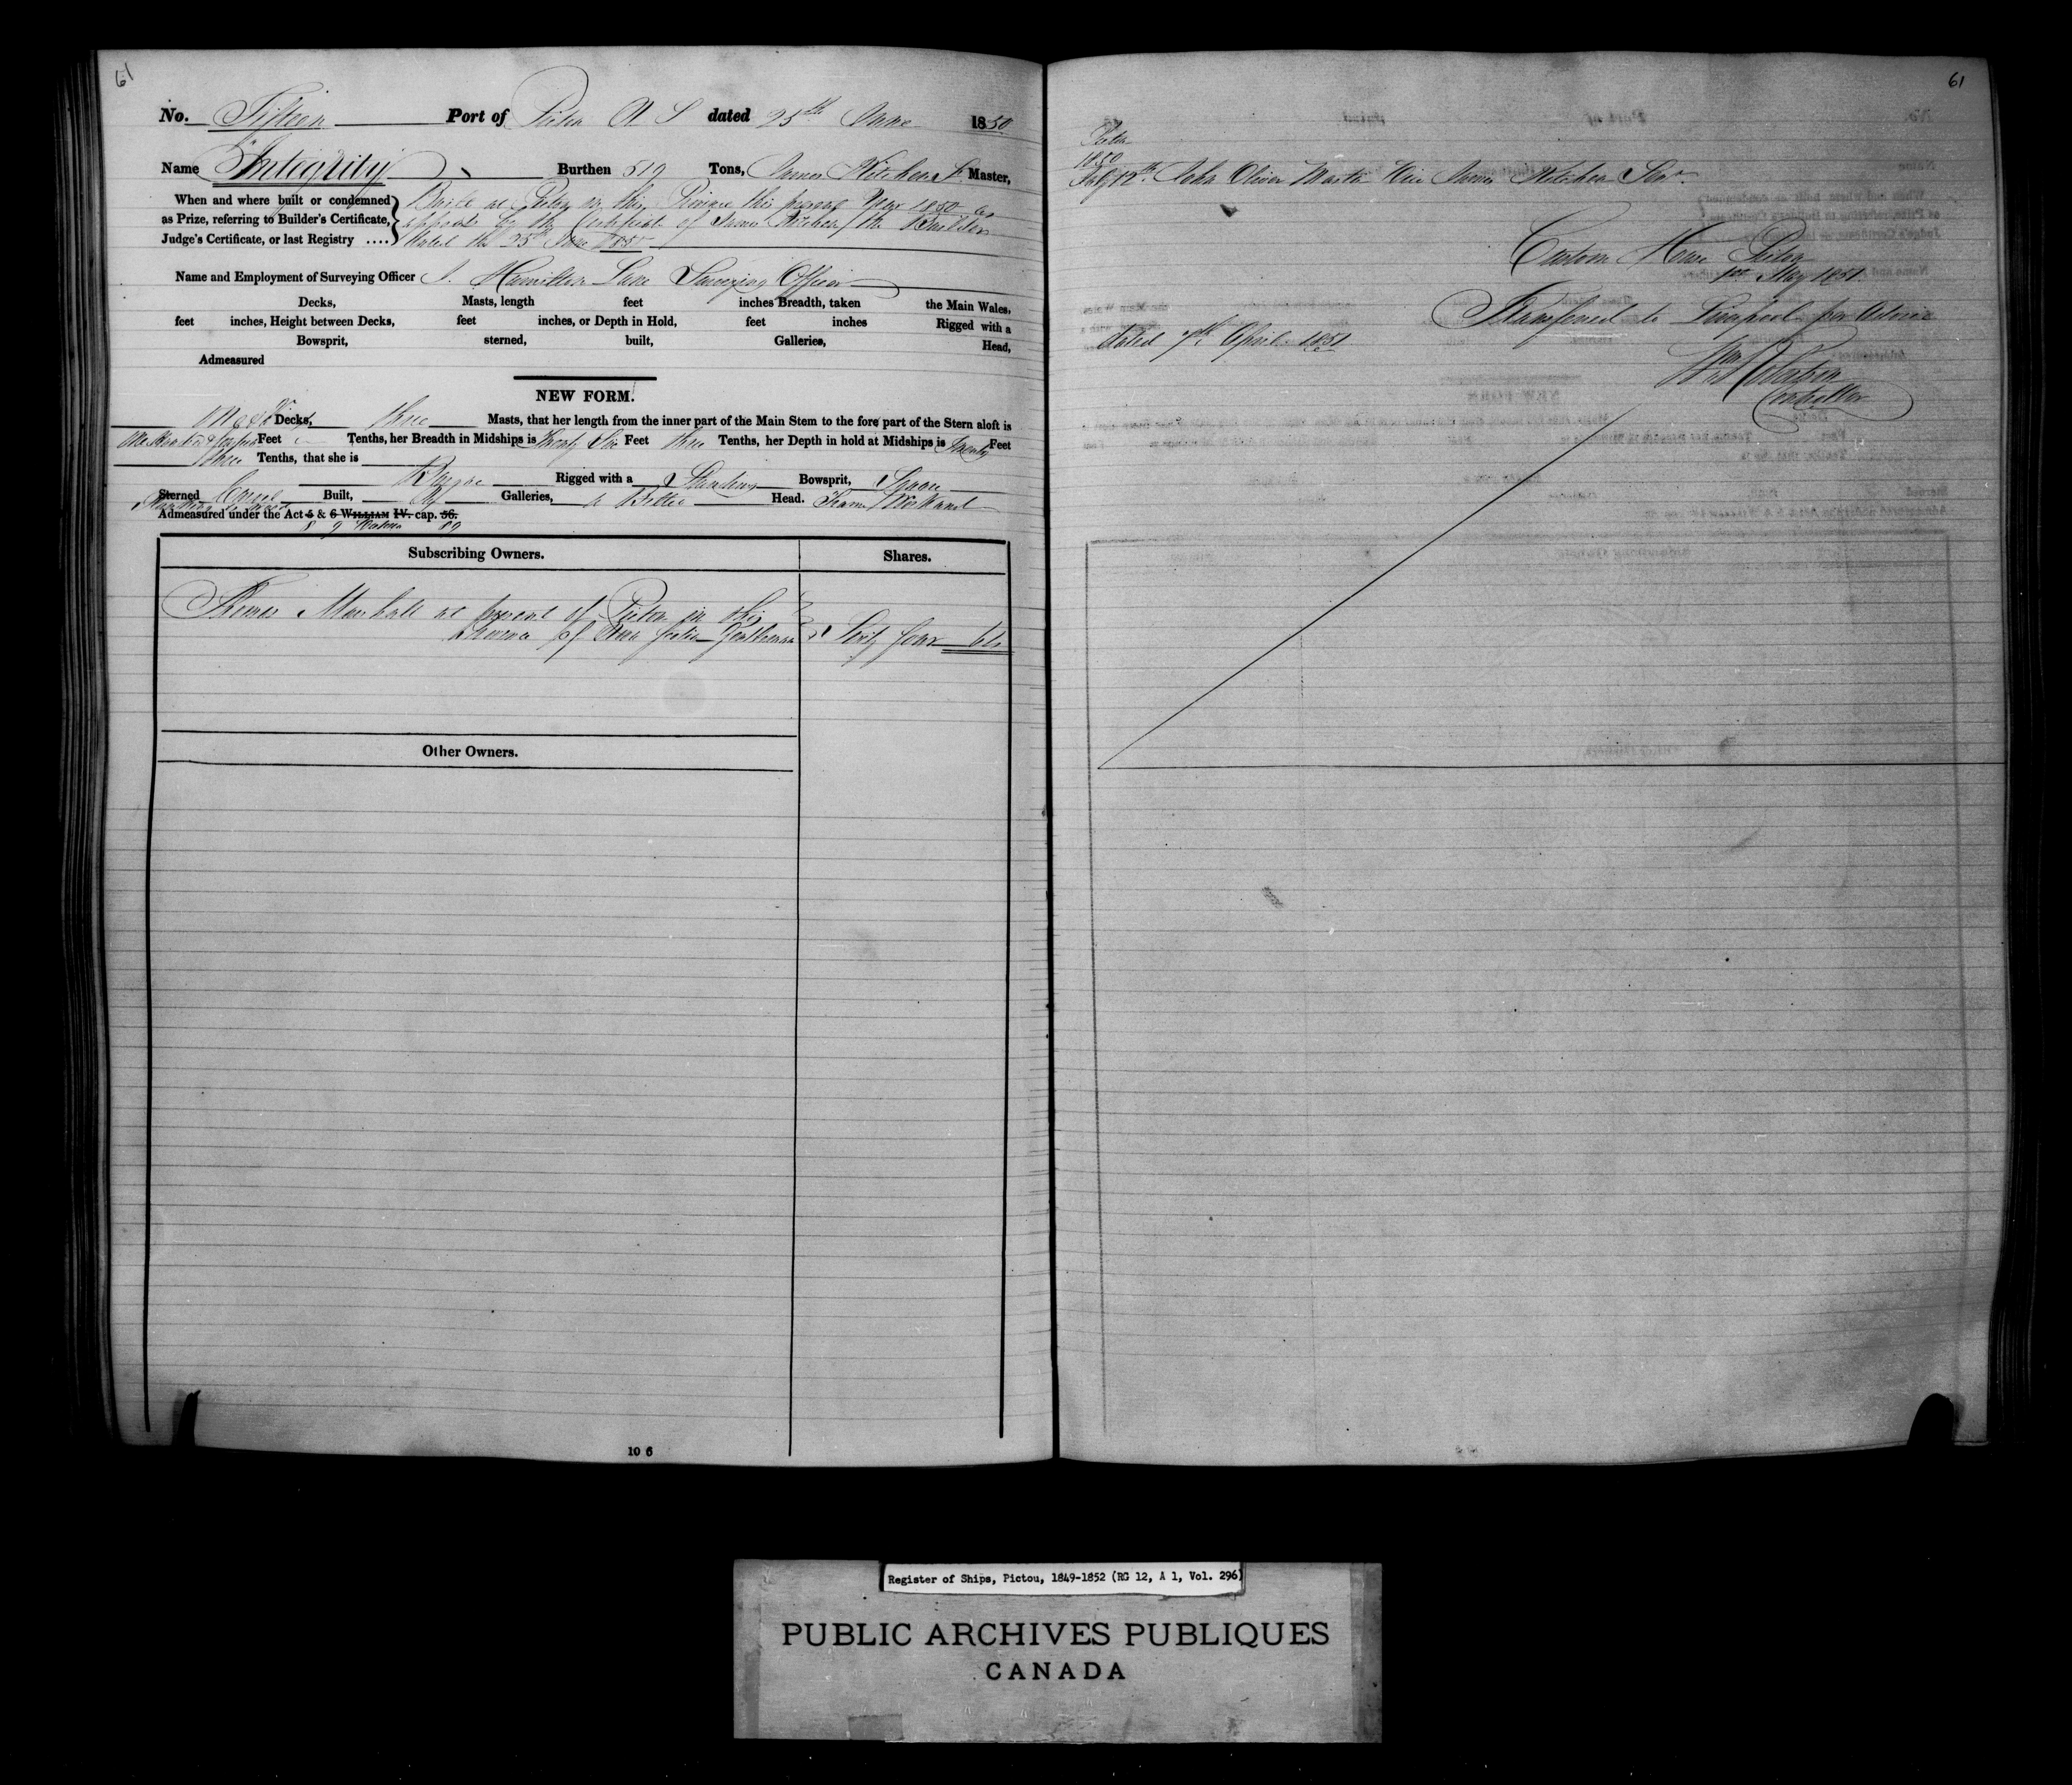 61
No. Fifteen Port of Pictou N S dated 25th June 1850
Name Integrity Burthen 519 Tons, James Kitchen Master,
When and where built or condemned
as Prize, referring to Builder's Certificate,
Judge's Certificate, or last Registry ....
Built at Pictou in this Province this present Year 1850 as
appears by the Certificate of James Kitchen the Builder
dated the 25th June 1850
Name and Employment of Surveying Officer J. Hamilton Lane Surveying Officer
Decks, Masts, length feet inches Breadth, taken the Main Wales,
feet inches, Height between Decks, feet inches, or Depth in Hold, feet inches Rigged with a
Bowsprit, sterned, built, Galleries, Head,
Admeasured
NEW FORM.
Decks, three Masts, that her length from the inner part of the Main Stem to the fore part of the Stern aloft is
One Hundred & Feet Tenths, her Breadth in Midships is Twenty Six Feet three Tenths, her Depth in hold at Midships is Twenty Feet
three Tenths, that she is
Rigged with a Standing Bowsprit, Square
Sterned Carvel Built, No Galleries, a Billet Head.
Admeasured under the Act 5 & 6 WILLIAM IV. cap. 56.
8 9 Victoria 89
Subscribing Owners. Shares.
Thomas Marshall at present of Pictou in the
Province of Nova Scotia Gentleman Sixty four 64
Other Owners.
10 6
61
Pictou
1850
July 12th John Oliver Master Vice James Kitchen Senr.
Custom House Pictou
1st May 1851
Transferred to Liverpool per Advice
dated 7th April 1851
Wm Robertson
Controller
Register of Ships, Pictou, 1849-1852 (RG 12, A 1, Vol. 296)
PUBLIC ARCHIVES PUBLIQUES
CANADA